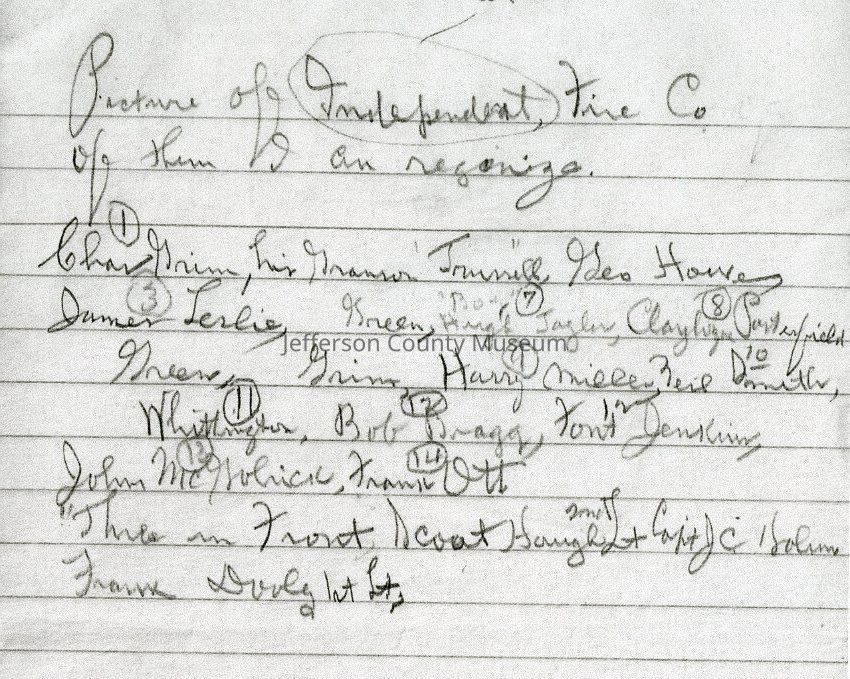 Picture of Independent, Fire Co
of them I can regonize.
1
Chas Grim, his Granson Trussell, Geo House,
3 "Boy" 7 8
James Leslie, Green, Hugh Taylor, Clayton Porterfield
9 10
Green, Grim, Harry Miller, Neil Dsmith,
11 12
Whittington, Bob Bragg, Font Jenkins,
13 14
John McGolrick, Frank Ott
"Three in Front, Scoat 2nd Lt Capt J C Holmes
Frank Dooly 1st Lt,
Jefferson County Museum